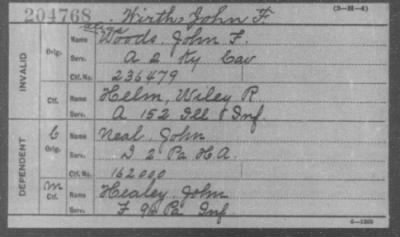 204768
Wirth, John F.
(3-H-4)
als
INVALID
Orig.
Name Woods, John F.
Serv. A 2 Ky Cav
Ctf. No. 236479
Ctf.
Name Helm, Wiley R
Serv. A 152 Ill Inf
DEPENDENT
C
Orig.
Name Neal, John
Serv. I 2 Pa H.A.
Ctf. No. 162000
M
Ctf.
Name Healey, John
Serv. F 96 Pa Inf